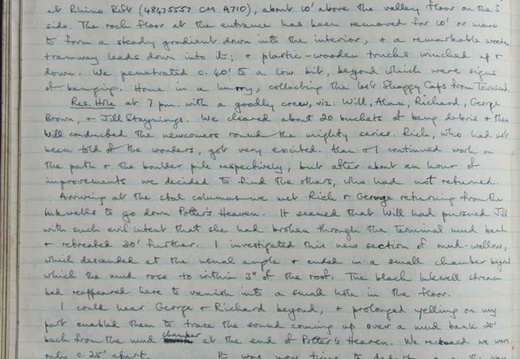 at Rhino Rift (48475557 CM A710), about 10' above the valley floor on the S
side. The rock floor at the entrance has been removed for 10' or more
to form a steady gradient down into the interior, & a remarkable wooden
tramway leads down into it; & plastic-wooden trucks winched up &
down. We penetrated c. 60' to a low bit, beyond which were signs
of bangings. Home in a hurry, collecting the last Shaggy Caps from
Res. Hole at 7 pm. with a goodly crew, viz. Will, Alan, Richard, George
Brown, & Jill Staynings. We cleared about 20 buckets of bang debris & then
Will conducted the newcomers round the mighty series. Rich, who had not
been told of the wonders, got very excited. Alan & I continued work on
the path & the boulder pile respectively, but after about an hour of
improvements we decided to find the others, who had not returned.
Arriving at the stal columns we met Rich & George returning from
Inkwells to go down Potter's Heaven. It seemed that Will had pursued Jill
with such evil intent that she had broken through the terminal mud bank
& retreated 30' further. I investigated this new section of mud-wallow,
which descended at the usual angle & ended in a small chamber beyond
which the mud rose to within 3" of the roof. The black Inkwell stream
bed reappeared here to vanish into a small hole in the floor.
I could hear George & Richard beyond, & prolonged yelling on my
part enabled them to trace the sound coming up over a mud bank 20'
back from the mud chamber at the end of Potter's Heaven. We reckoned we were
only c. 25' apart. It was now time to